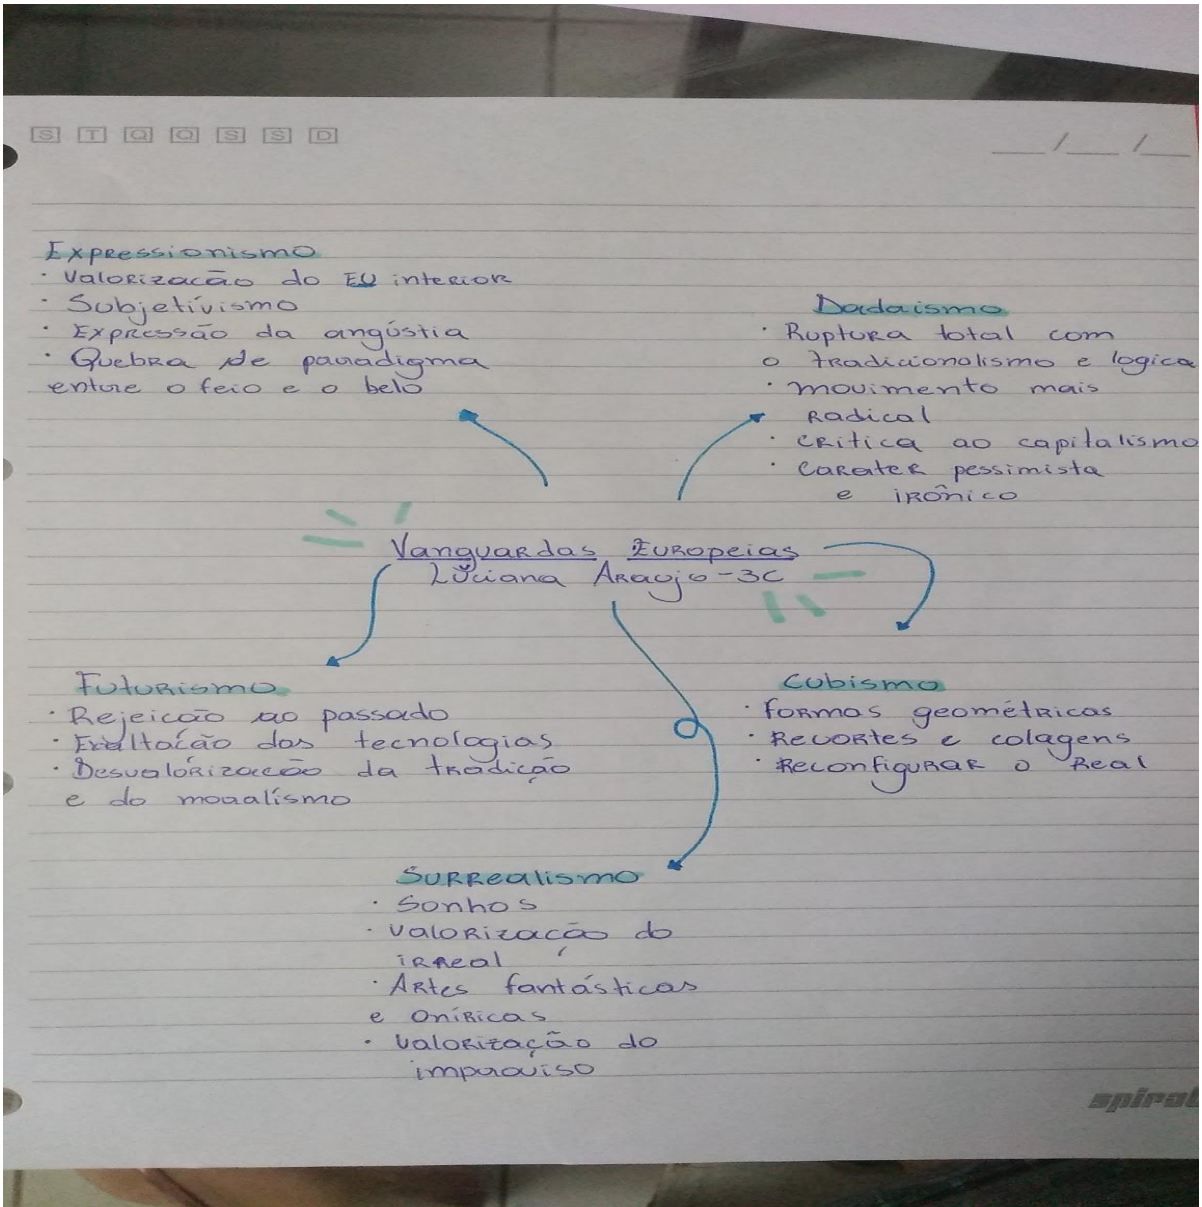 S T Q Q S S D
__/__/__
Expressionismo
· Valorizacão do EU interior
· Subjetívismo
· Expressão da angústia
· Quebra de paradigma
entre o feio e o belo
Dadaismo
· Ruptura total com
o tradicionalismo e logica
· movimento mais
Radical
· Critica ao capitalismo
· Carater pessimista
e irônico
Vanguardas Europeias
Luciana Araujo-3C
Futurismo
· Rejeicão ao passado
· Exaltacão das tecnologias
· Desvalorizacão da tradição
e do moralísmo
Cubismo
· formas geométricas
· Recortes e colagens
· Reconfigurar o Real
Surrealismo
· Sonhos
· Valorizacão do
irreal
· Artes fantásticas
e Oníricas
· Valorização do
improviso
spiral